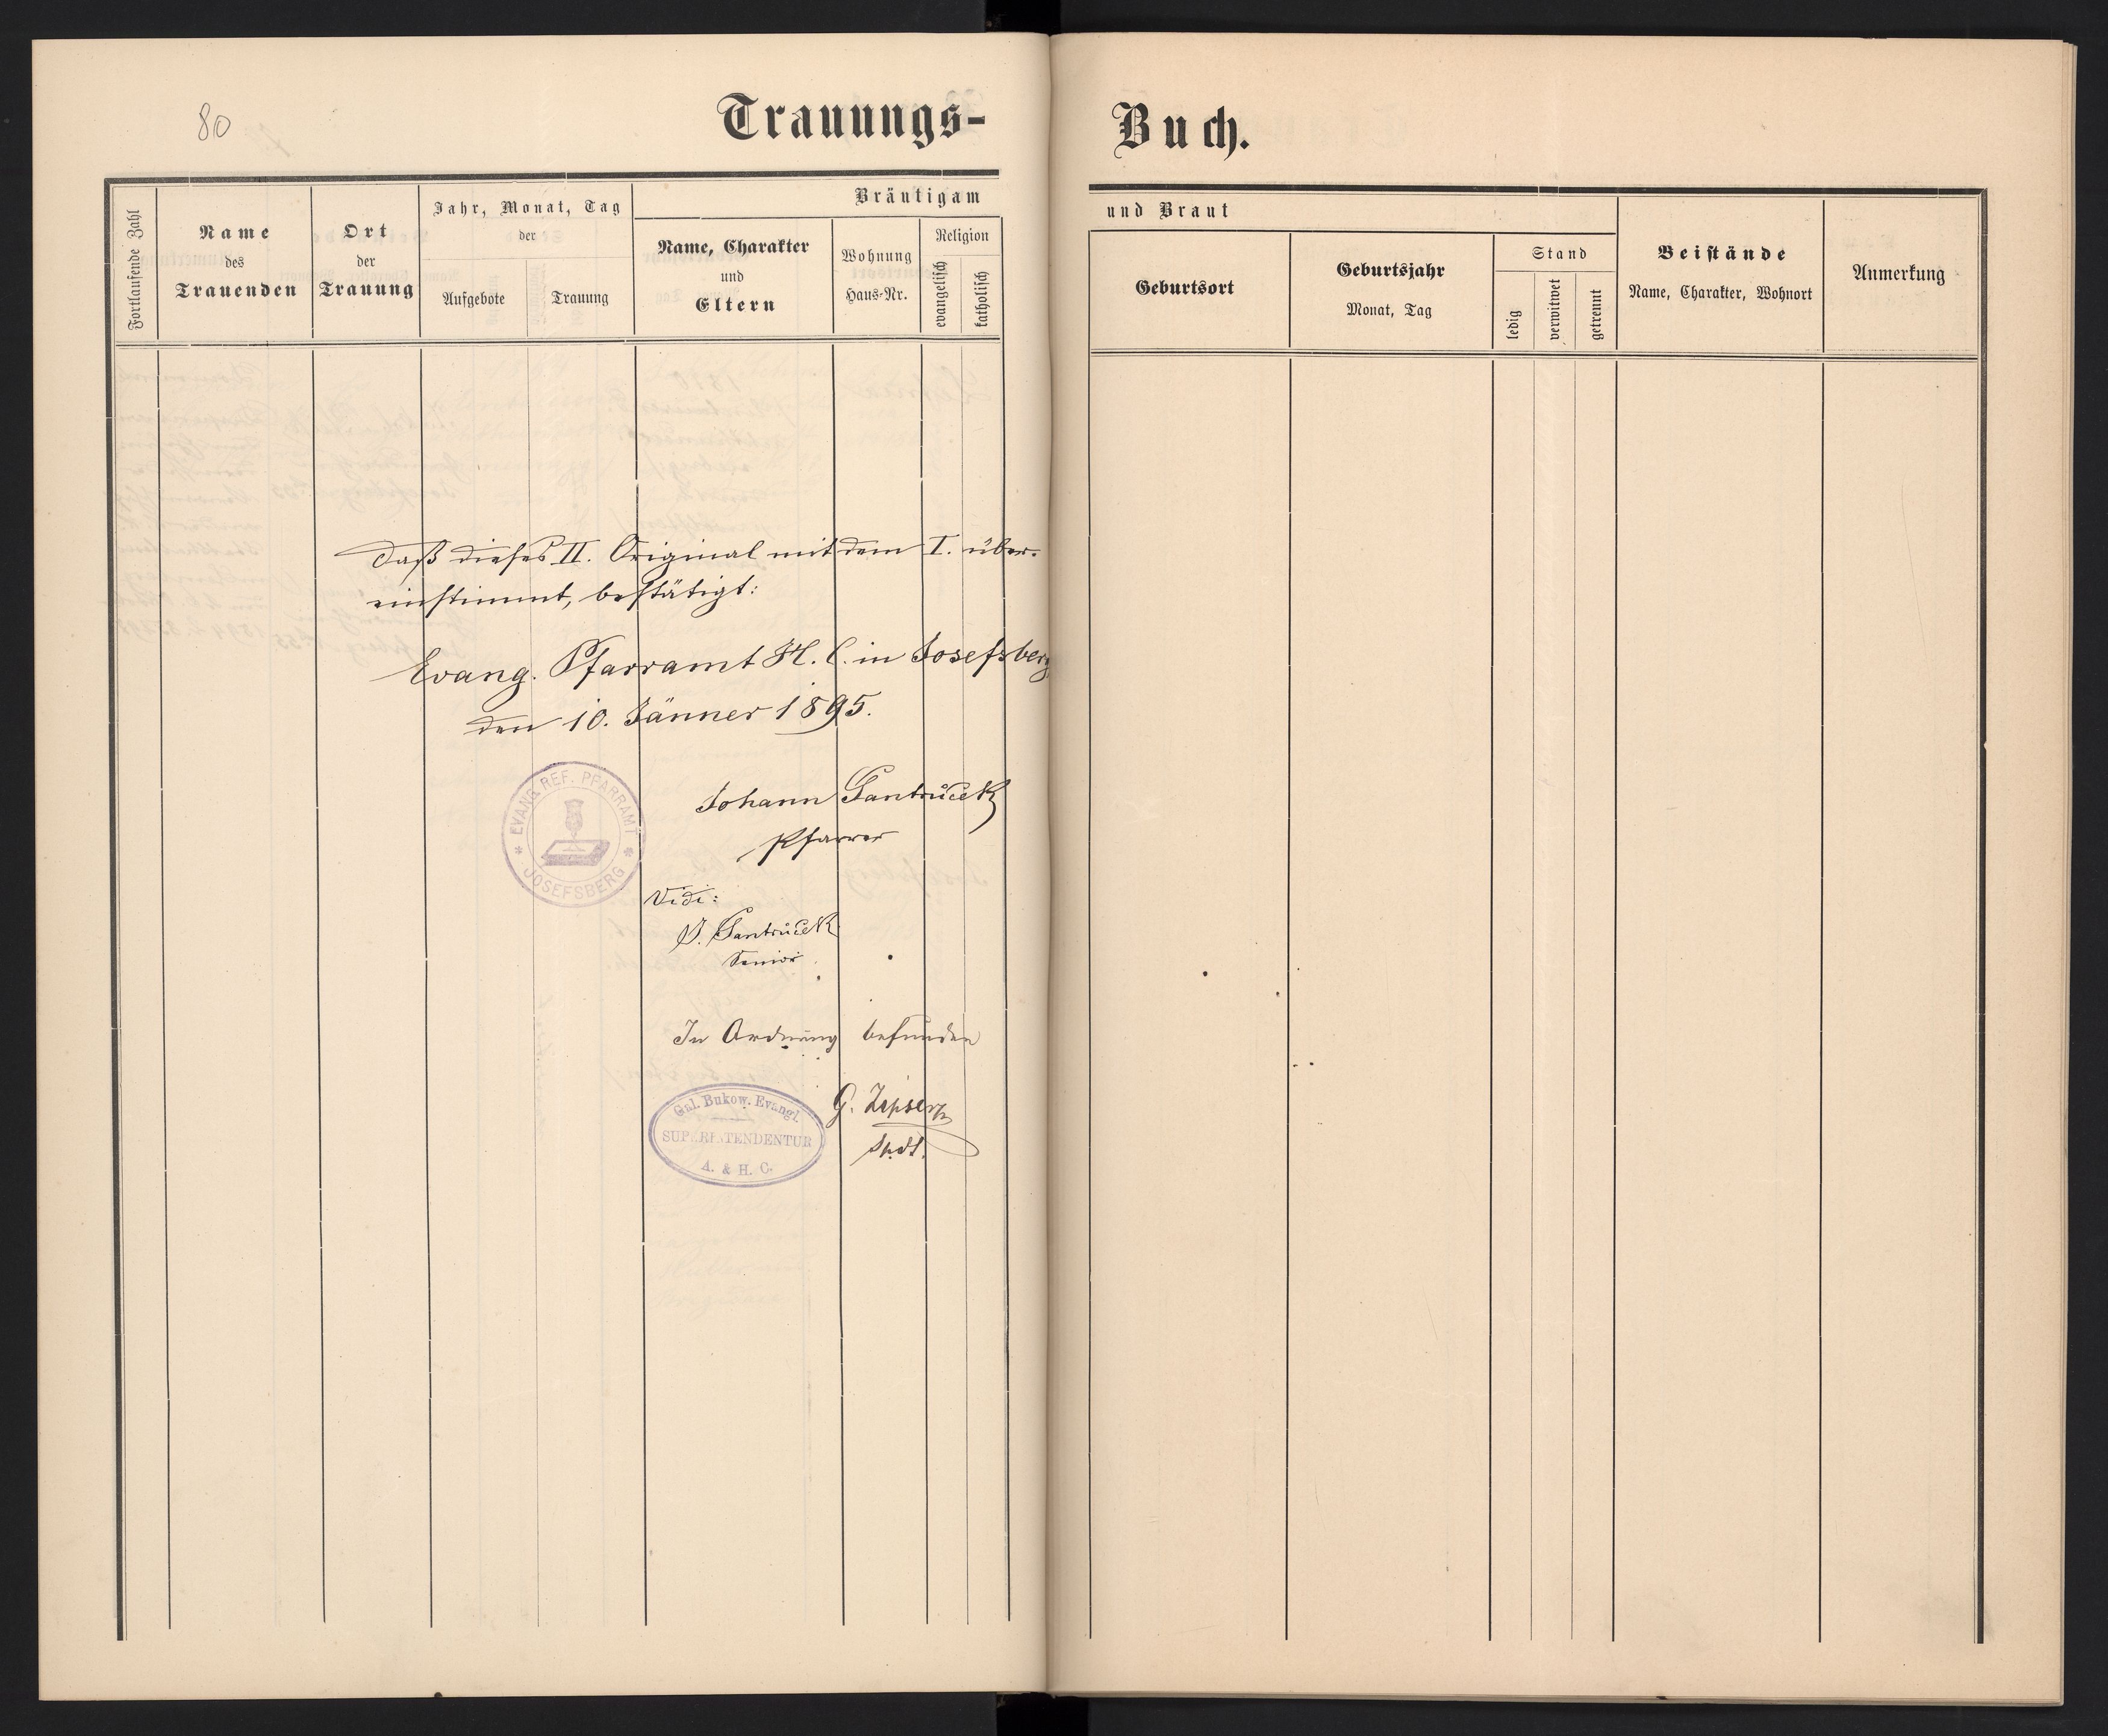 80
Trauungs-
Buch.
Fortlaufende Zahl
Name
des
Trauenden
Ort
der
Trauung
Jahr, Monat, Tag
der
Aufgebote
Trauung
Bräutigam
Name, Charakter
und
Eltern
Wohnung
Haus-Nr.
Religion
evangelisch
katholisch
und Braut
Geburtsort
Geburtsjahr
Monat, Tag
Stand
ledig
verwitwet
getrennt
Beistände
Name, Charakter, Wohnort
Anmerkung
Daß dieses II. Original mit dem I. über-
einstimmt, bestätigt:
Evang. Pfarramt H. C. in Josefsberg
den 10. Jänner 1895.
EVANG. REF. PFARRAMT
* JOSEFSBERG *
Johann Santrůček
Pfarrer
Vidi:
J. Santrůček
Senior
In Ordnung befunden
Gal. Bukow. Evangl.
SUPERINTENDENTUR
A. & H. C.
G. Zipser
Spdt.